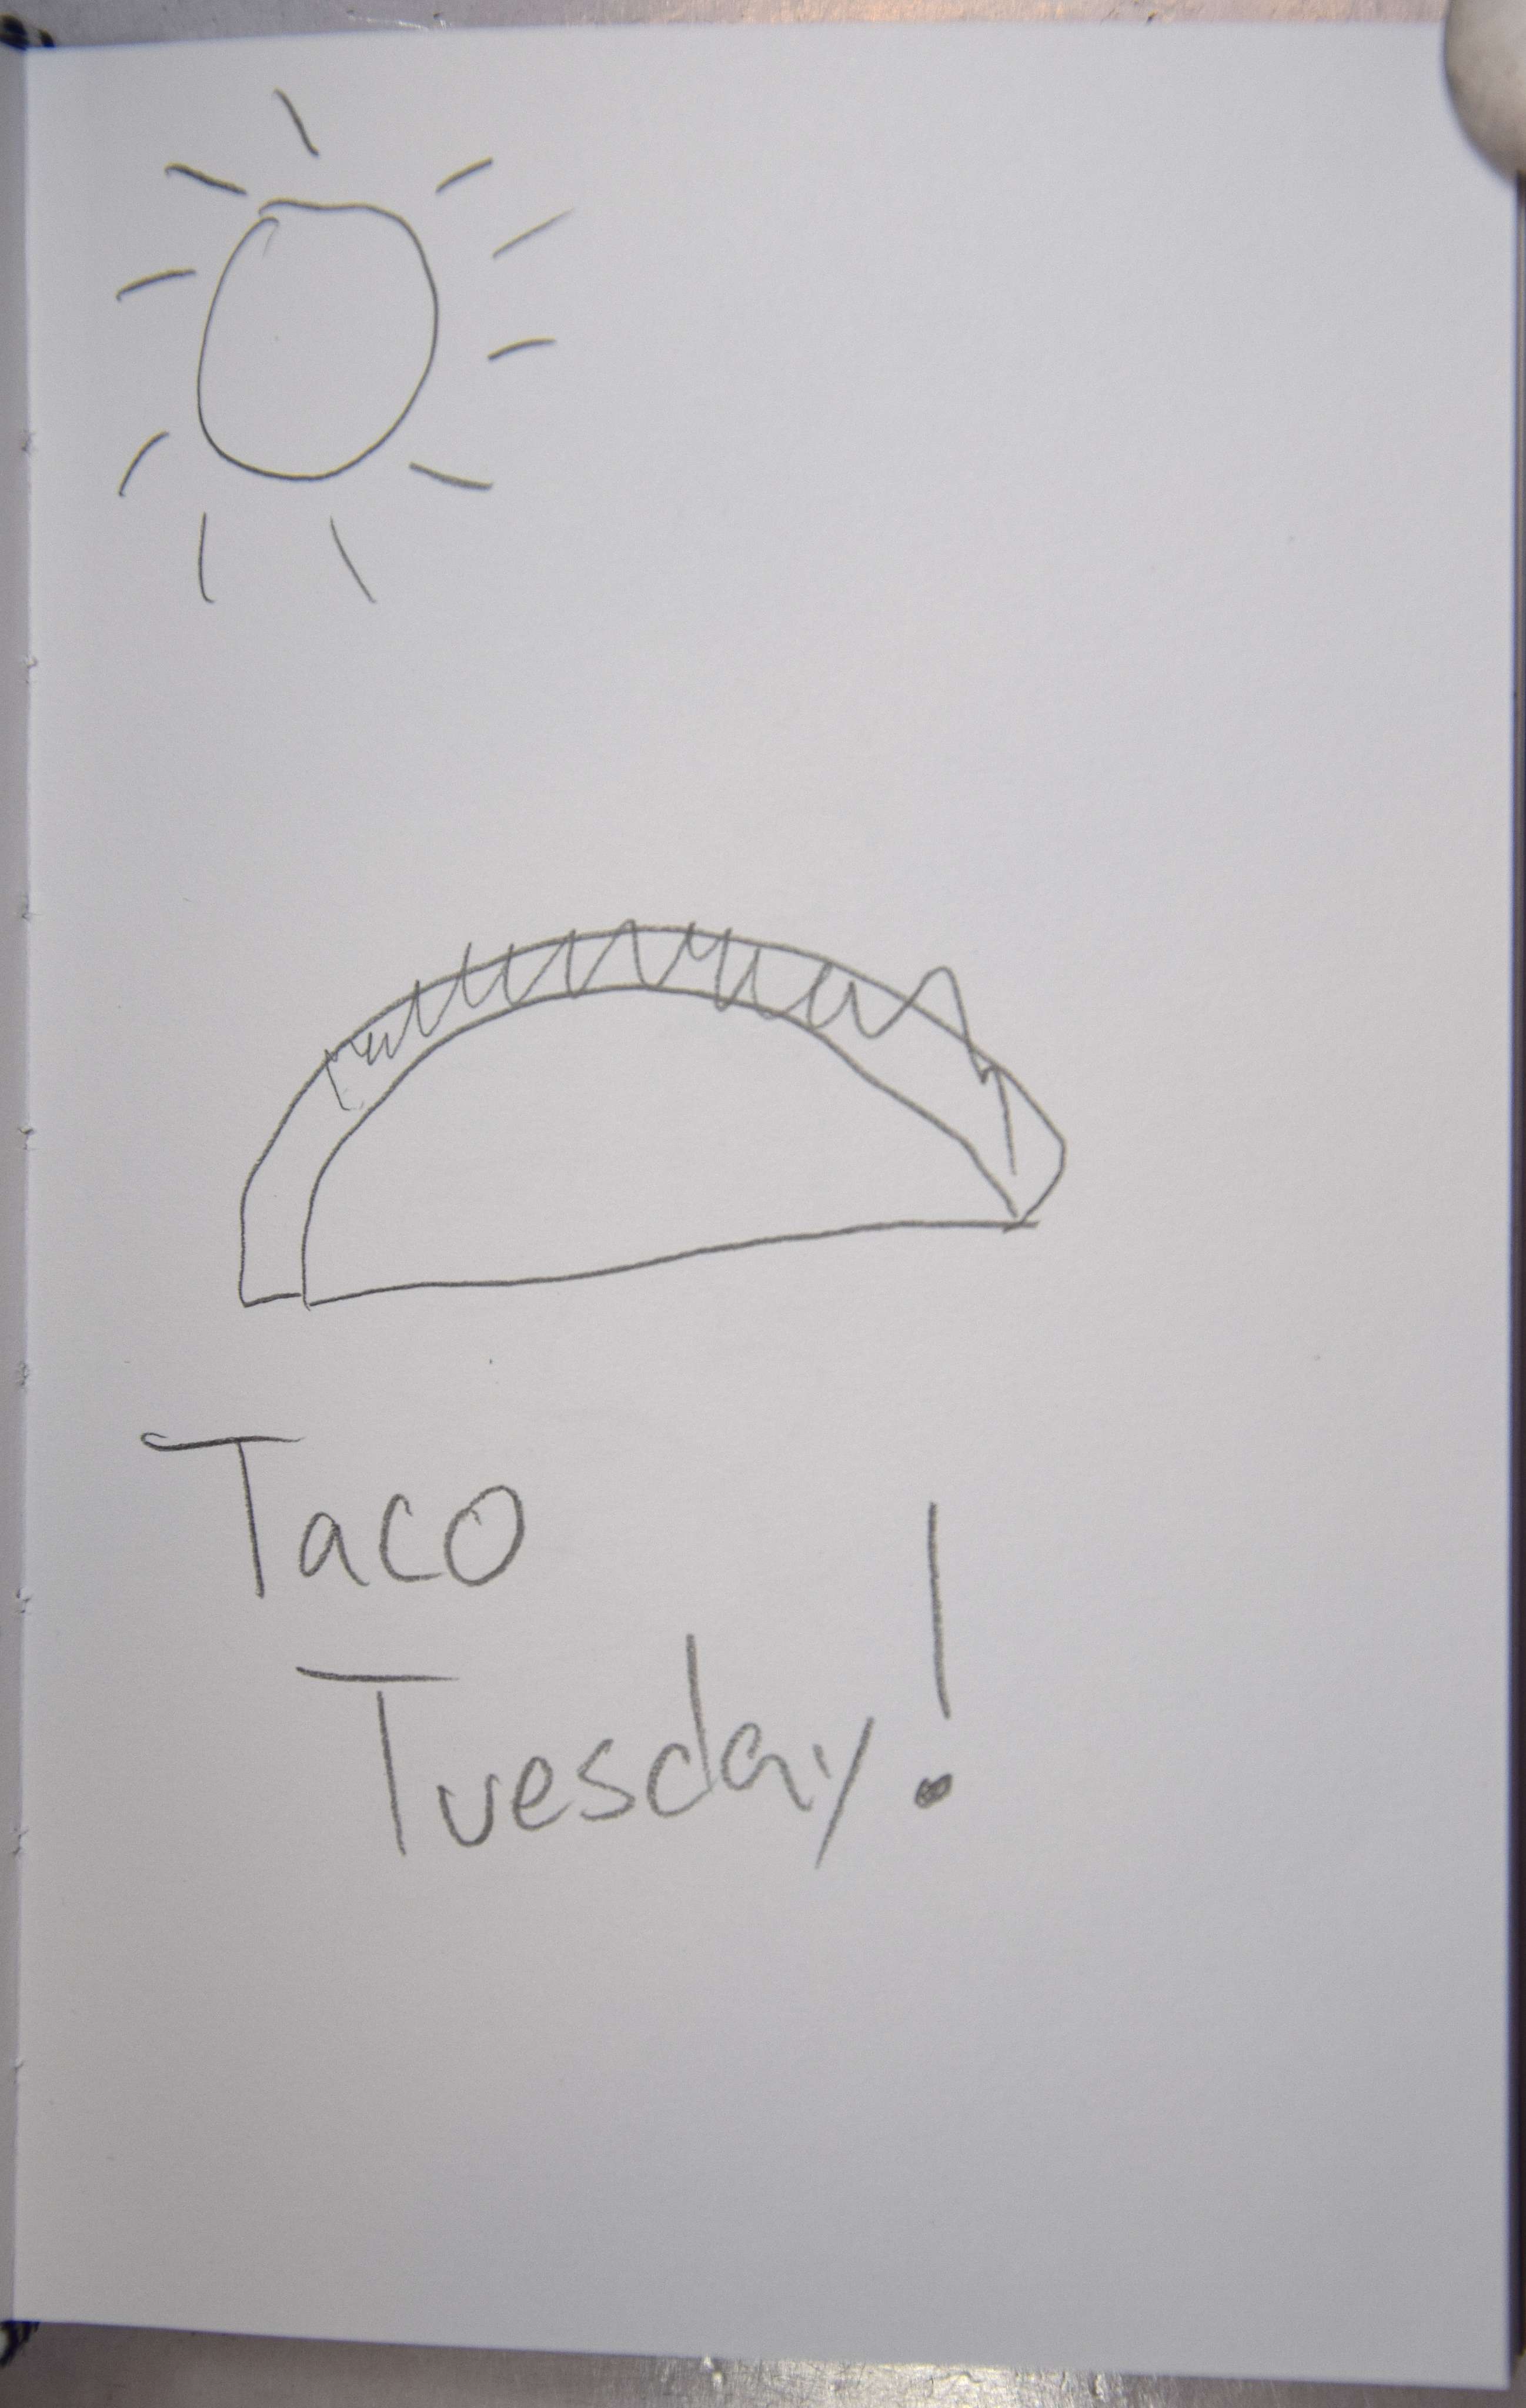 Taco
Tuesday!